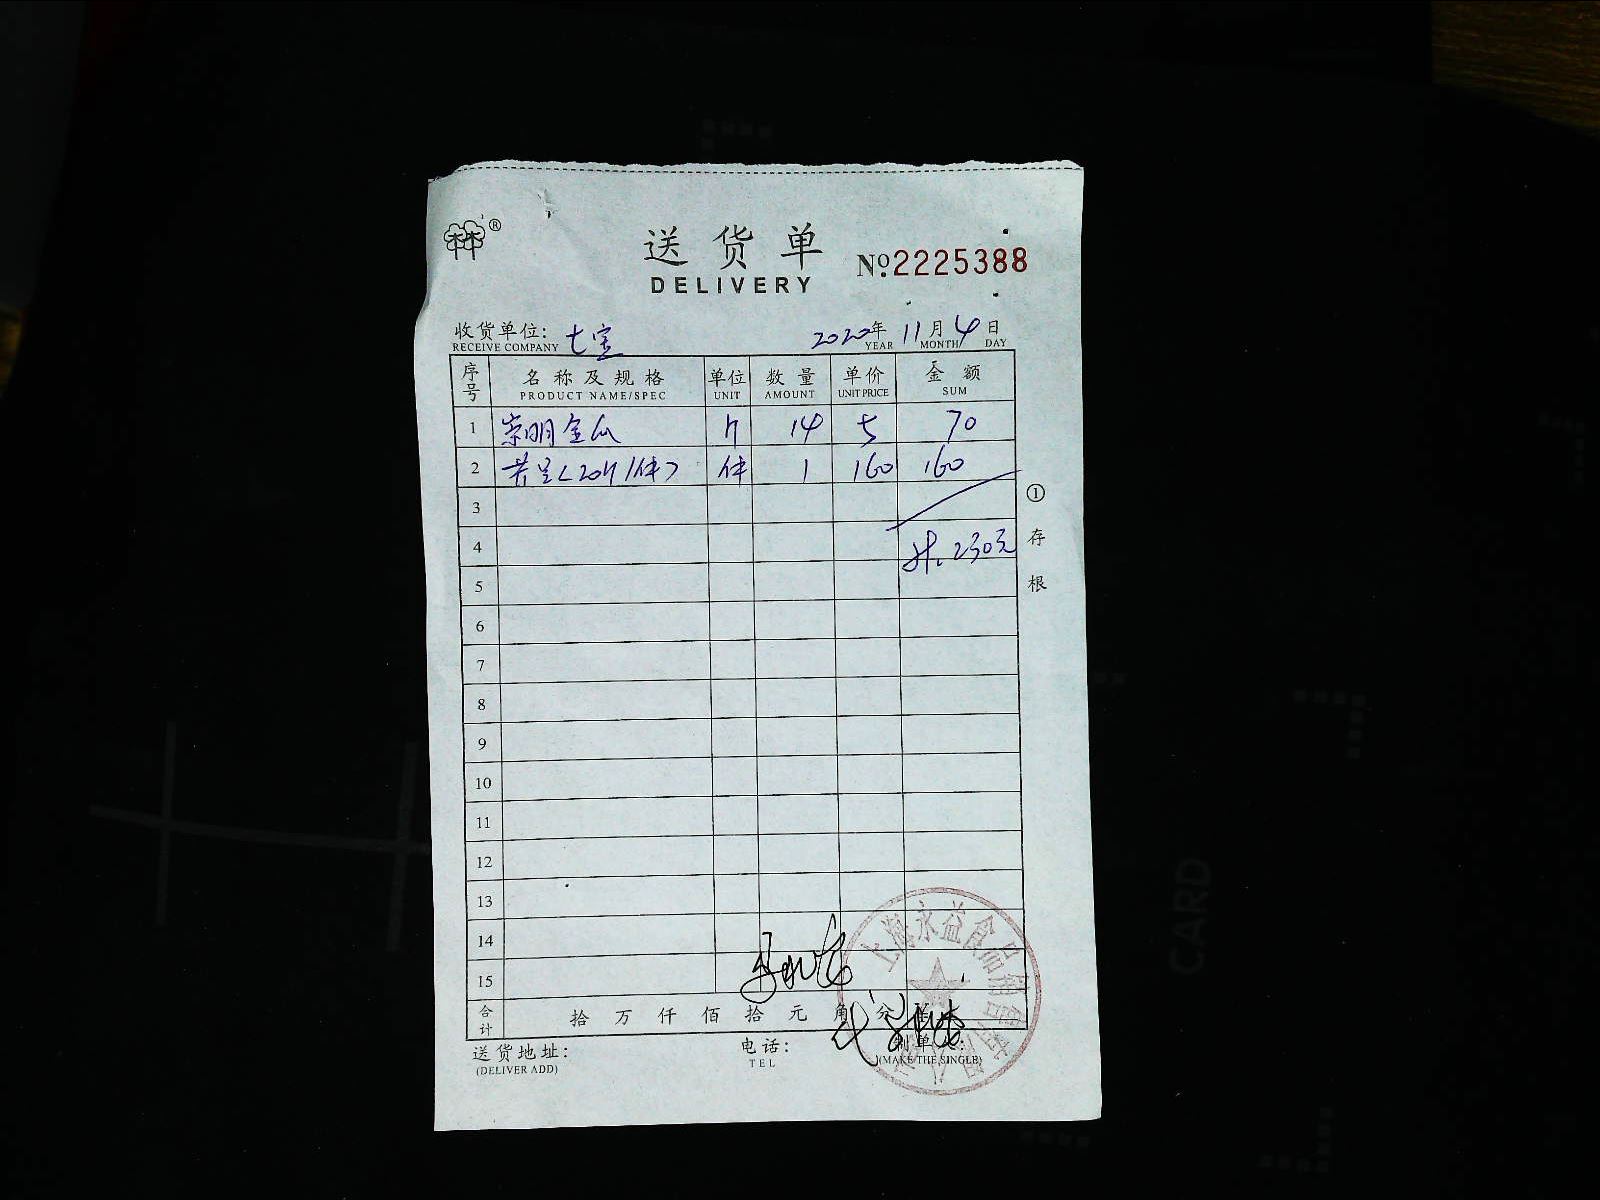 林®
送货单
DELIVERY
№2225388
收货单位: 七宝 2020年 11月 4日
RECEIVE COMPANY YEAR MONTH DAY
序号 名称及规格 单位 数量 单价 金额
PRODUCT NAME/SPEC UNIT AMOUNT UNIT PRICE SUM
1 崇明金瓜 斤 14 5 70
2 (20斤/件) 件 1 160 160
3
4 共. 230元
5
6
7
8
9
10
11
12
13
14
15
合计 拾万仟佰拾元角分
① 存根
上海永益食品销售
送货地址: 电话: 制单
(DELIVER ADD) TEL (MAKE THE SINGLE)
CARD